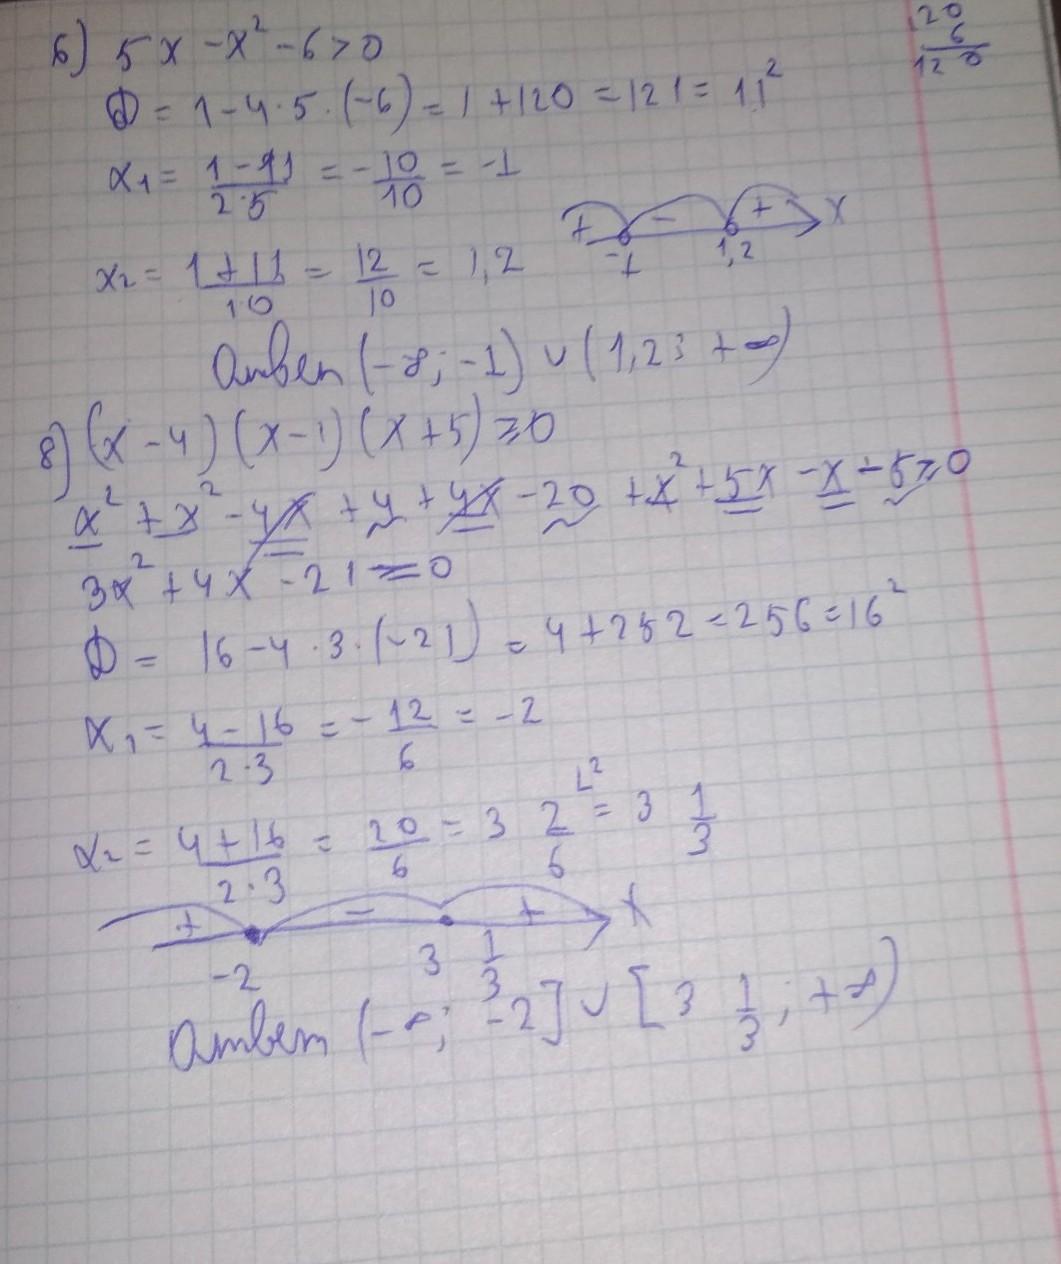 20
6
120
б) 5x - x² - 6 > 0
D = 1 - 4 · 5 · (-6) = 1 + 120 = 121 = 11²
x₁ = (1 - 11)/(2·5) = -10/10 = -1
+ - + x
-1 1,2
x₂ = (1 + 11)/10 = 12/10 = 1,2
Ответ (-∞; -1) ∪ (1,2; +∞)
8) (x - 4)(x - 1)(x + 5) ≥ 0
x² + x² - 4x + 4 + 4x - 20 + x² + 5x - x - 5 ≥ 0
3x² + 4x - 21 = 0
D = 16 - 4 · 3 · (-21) = 4 + 252 = 256 = 16²
x₁ = (4 - 16)/(2·3) = -12/6 = -2
x₂ = (4 + 16)/(2·3) = 20/6 = 3 2/6 = 3 1/3
+ - + x
-2 3 1/3
Ответ (-∞; -2] ∪ [3 1/3; +∞)